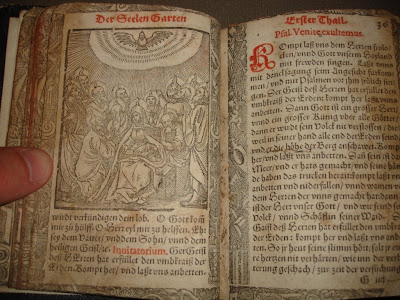 Der Seelen Garten
wirdt verkündigen dein lob. O Gott kom
mir zu hülff. O Herr eyl mir zu helffen. Ehr
sey dem Vatter/ vnd dem Sohn/ vnnd dem
heiligen Geist/
Inuitatorium. Der Geist
deß HErren hat erfüllet den vmbkraiß der
Erden. Kompt her/ vnd laßt vns anbetten.
Erster Thail. 36
Psal. Venite exultemus.
Kompt laßt vns dem Herren frolo-
cken/ vnd Gott vnserm Heyland
mit frewden singen. Laßt vnns
mit dancksagung sein Angesicht fürkom-
men/ vnd mit Psalmen vor ihm frölich
gen. Der Geist deß Herren hat erfüllet den
vmbkraiß der Erden: kompt her laßt vnns
anbetten. Dann Gott ist ein grosser Herr/
vnd ein grosser König vber alle Götter/
dann er wirdt sein Volck nit verstossen/
weil in seiner hand alle end der Erden seind/
vnd er die höhe der Berg anschawet. Kompt
her/ vnd laßt vns anbetten. Das sein ist das
Meer/ vnd er hats gemacht/ vnd seine hän-
de haben das trucken beraitt: kompt laßt vns
anbetten vnd niderfallen/ vnnd
dem Herren der vnns gemacht hat dann
ist der Herr vnser Gott/ vnd wir seind sein
Volck/ vnnd Schäflin seiner Waid. Der
Geist deß Herren hat erfüllet den vmbkraiß
der Erden: kompt her vnd laßt vns anbet-
ten. So jr heut seine stimm hört/ solt jr ewre
hertzen nit verhärten/ wie inn der
terung geschach/ zur zeit der versuchung